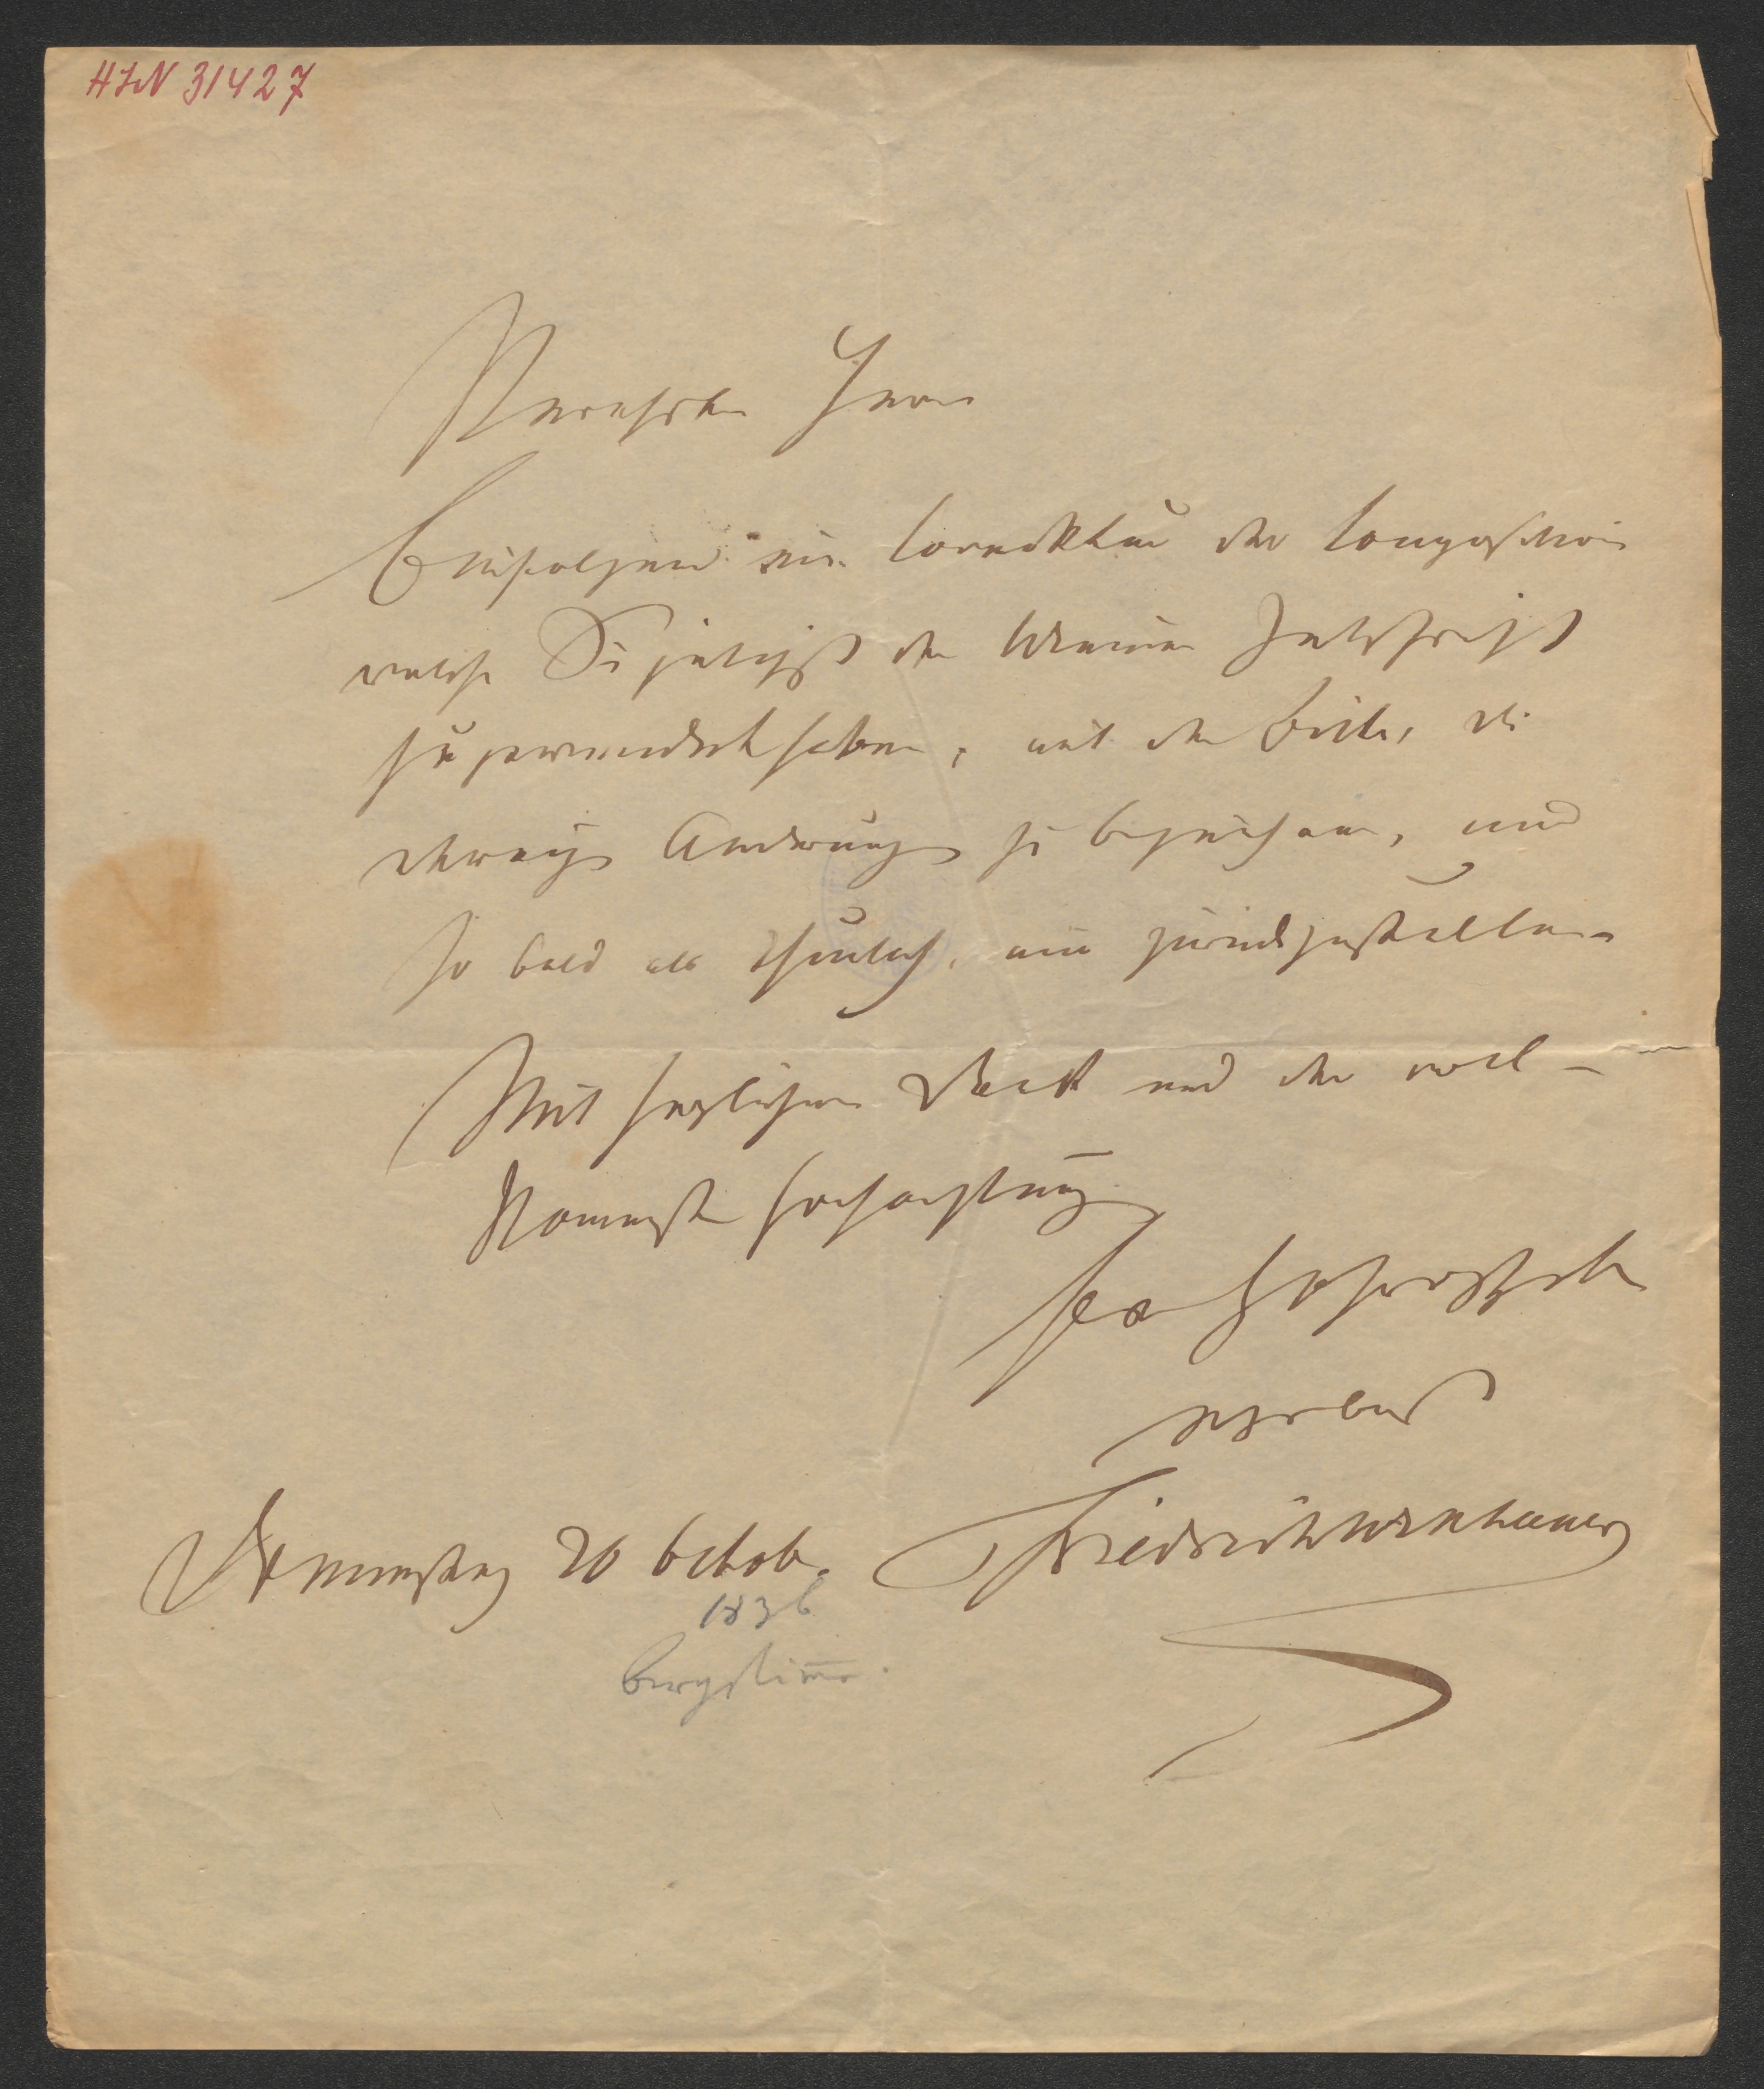 HIN 31427
Verehrter Herr
Beifolgend die Correcktur der Composition
welche Sie gütigst der Wiener Zeitschrift
zugewendet haben, mit der Bitte, die
etwaigen Änderungen zu bezeichnen, und
so bald als thunlich, mir zurückzustellen
Mit herzlichem Dank und der voll-
kommensten Hochachtung
Ihr
ergebenst
Friedrich Witthauer
Donnerstag 20 Octob.
1836